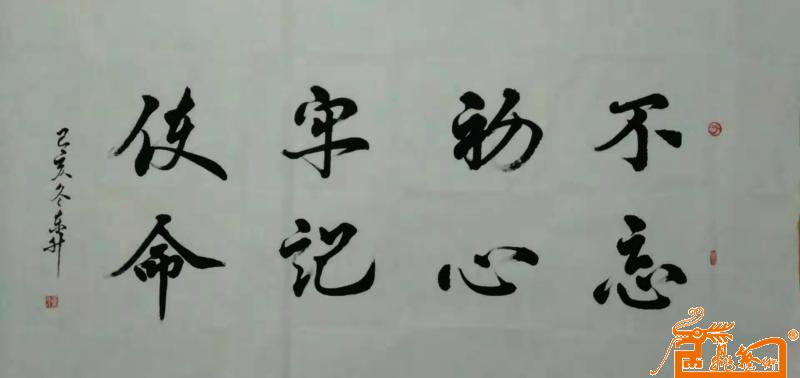 不忘
初心
牢记
使命
己亥冬东升